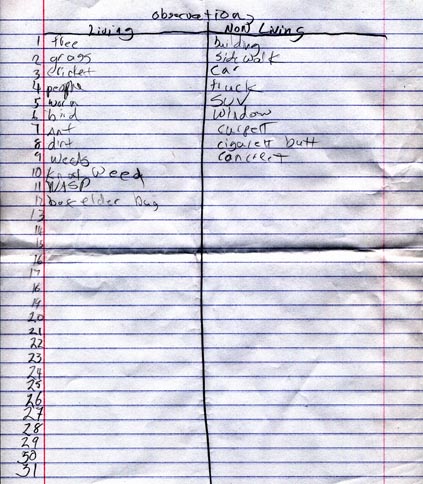 observations
Living Non Living
1 tree building
2 grass sidewalk
3 cricket car
4 people truck
5 worm SUV
6 bird window
7 ant curpett
8 dirt cigarett butt
9 weeds concreet
10 knot weed
11 WASP
12 box elder bug
13
14
15
16
17
18
19
20
21
22
23
24
25
26
27
28
29
30
31